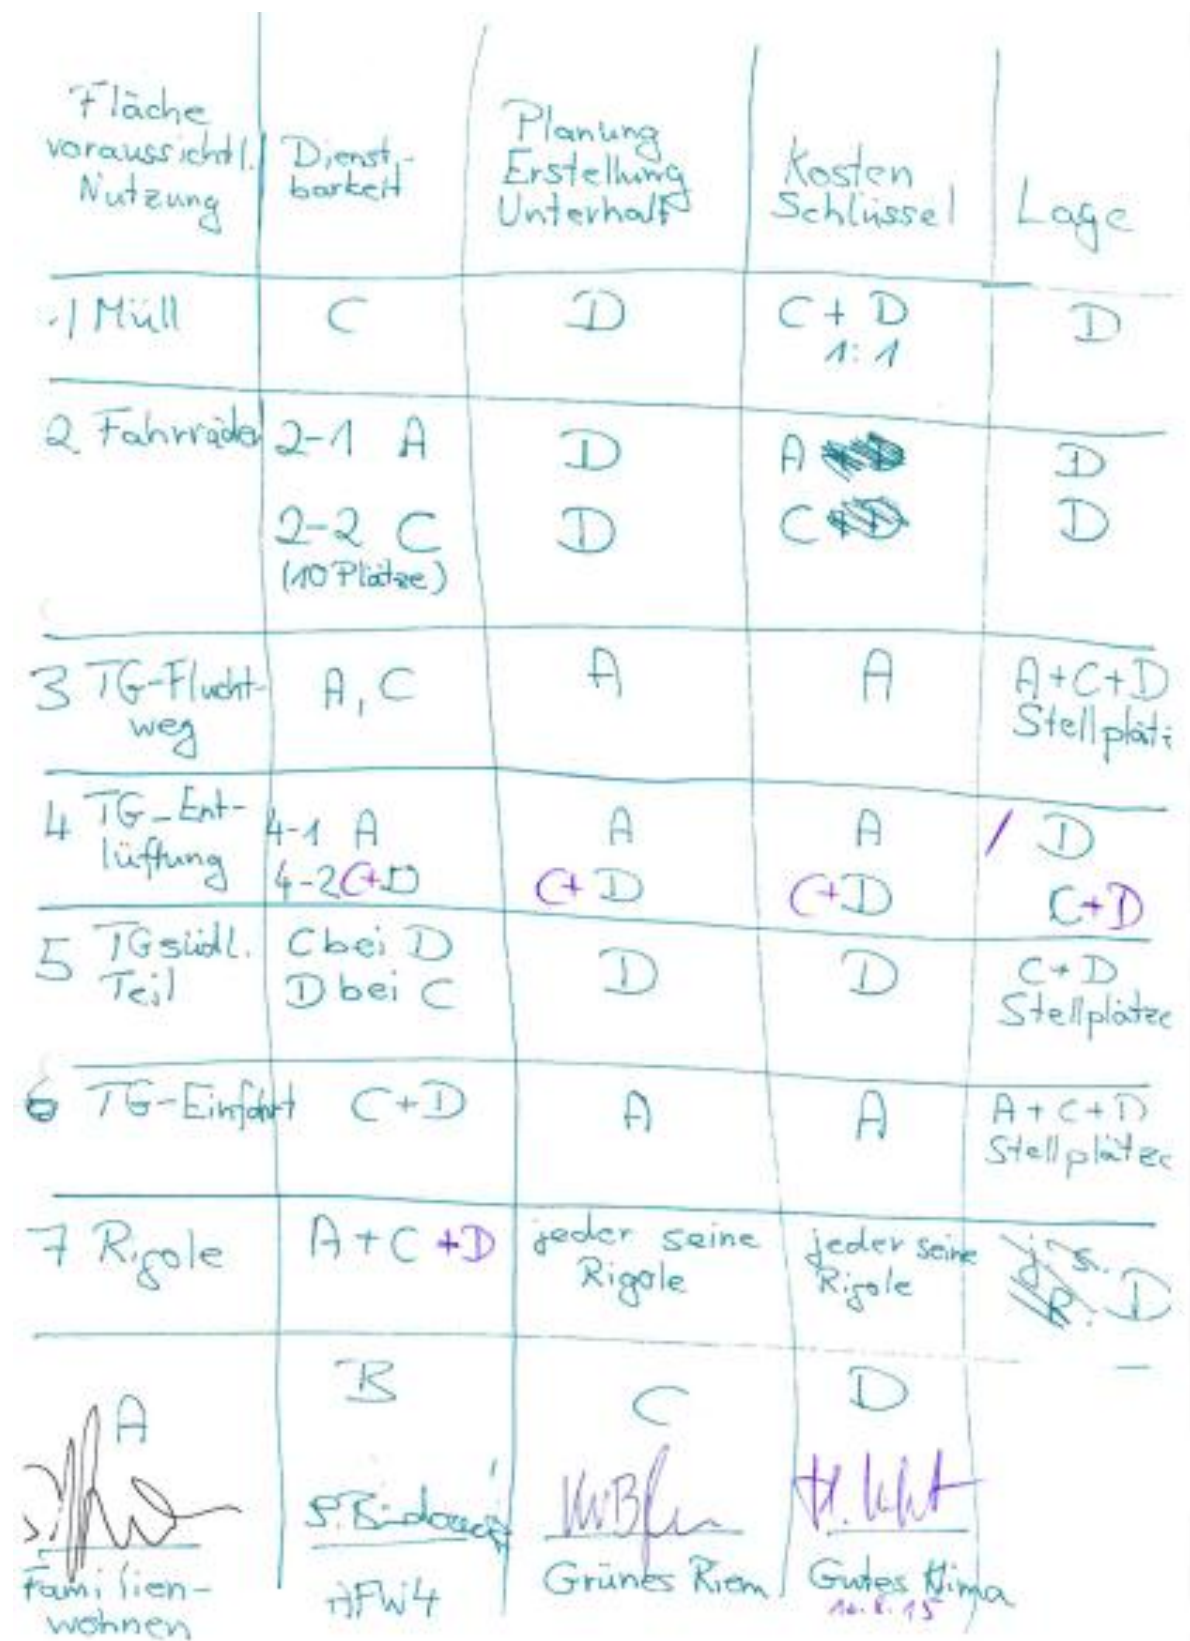 Fläche
voraussichtl.
Nutzung
Dienst-
barkeit
Planung
Erstellung
Unterhalt
Kosten
Schlüssel
Lage
1 Müll C D C + D D
1:1
2 Fahrräder 2-1 A D A D
2-2 C D C D
(10 Plätze)
3 TG-Flucht-
weg
A, C A A A+C+D
Stellplätz
4 TG-Ent-
lüftung
4-1 A A A / D
4-2 C+D C+D C+D C+D
5 TG südl.
Teil
C bei D
D bei C
D D C+D
Stellplätze
6 TG-Einfahrt C+D A A A+C+D
Stellplätze
7 Rigole A+C+D jeder seine
Rigole
jeder seine
Rigole
j. s.
R. D
A B C D
Familien-
wohnen
Grünes Riem
Gutes Klima